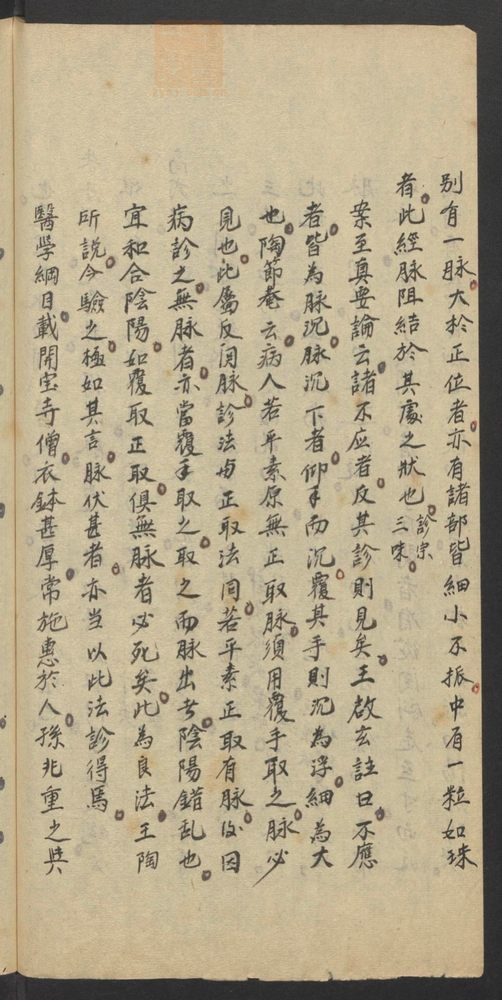 別有一脉大於正位者亦有諸部皆細小不振中有一粒如珠
者此經脉阻結於其處之狀也診宗三昧
案至真要論云諸不应者反其診則見矣王啟玄註曰不應
者皆為脉沉脉沉下者仰手而沉覆其手則沉為浮細為大
也陶節菴云病人若平素原無正取脉須用覆手取之脉必
見也此屬反関脉診法与正取法同若平素正取有脉后因
病診之無脉者亦當覆手取之取之而脉出者陰陽錯乱也
宜和合陰陽如覆取正取俱無脉者必死矣此為良法王陶
所説今驗之極如其言脉伏甚者亦当以此法診得焉
醫學綱目載開宝寺僧衣鉢甚厚常施惠於人孫兆重之與